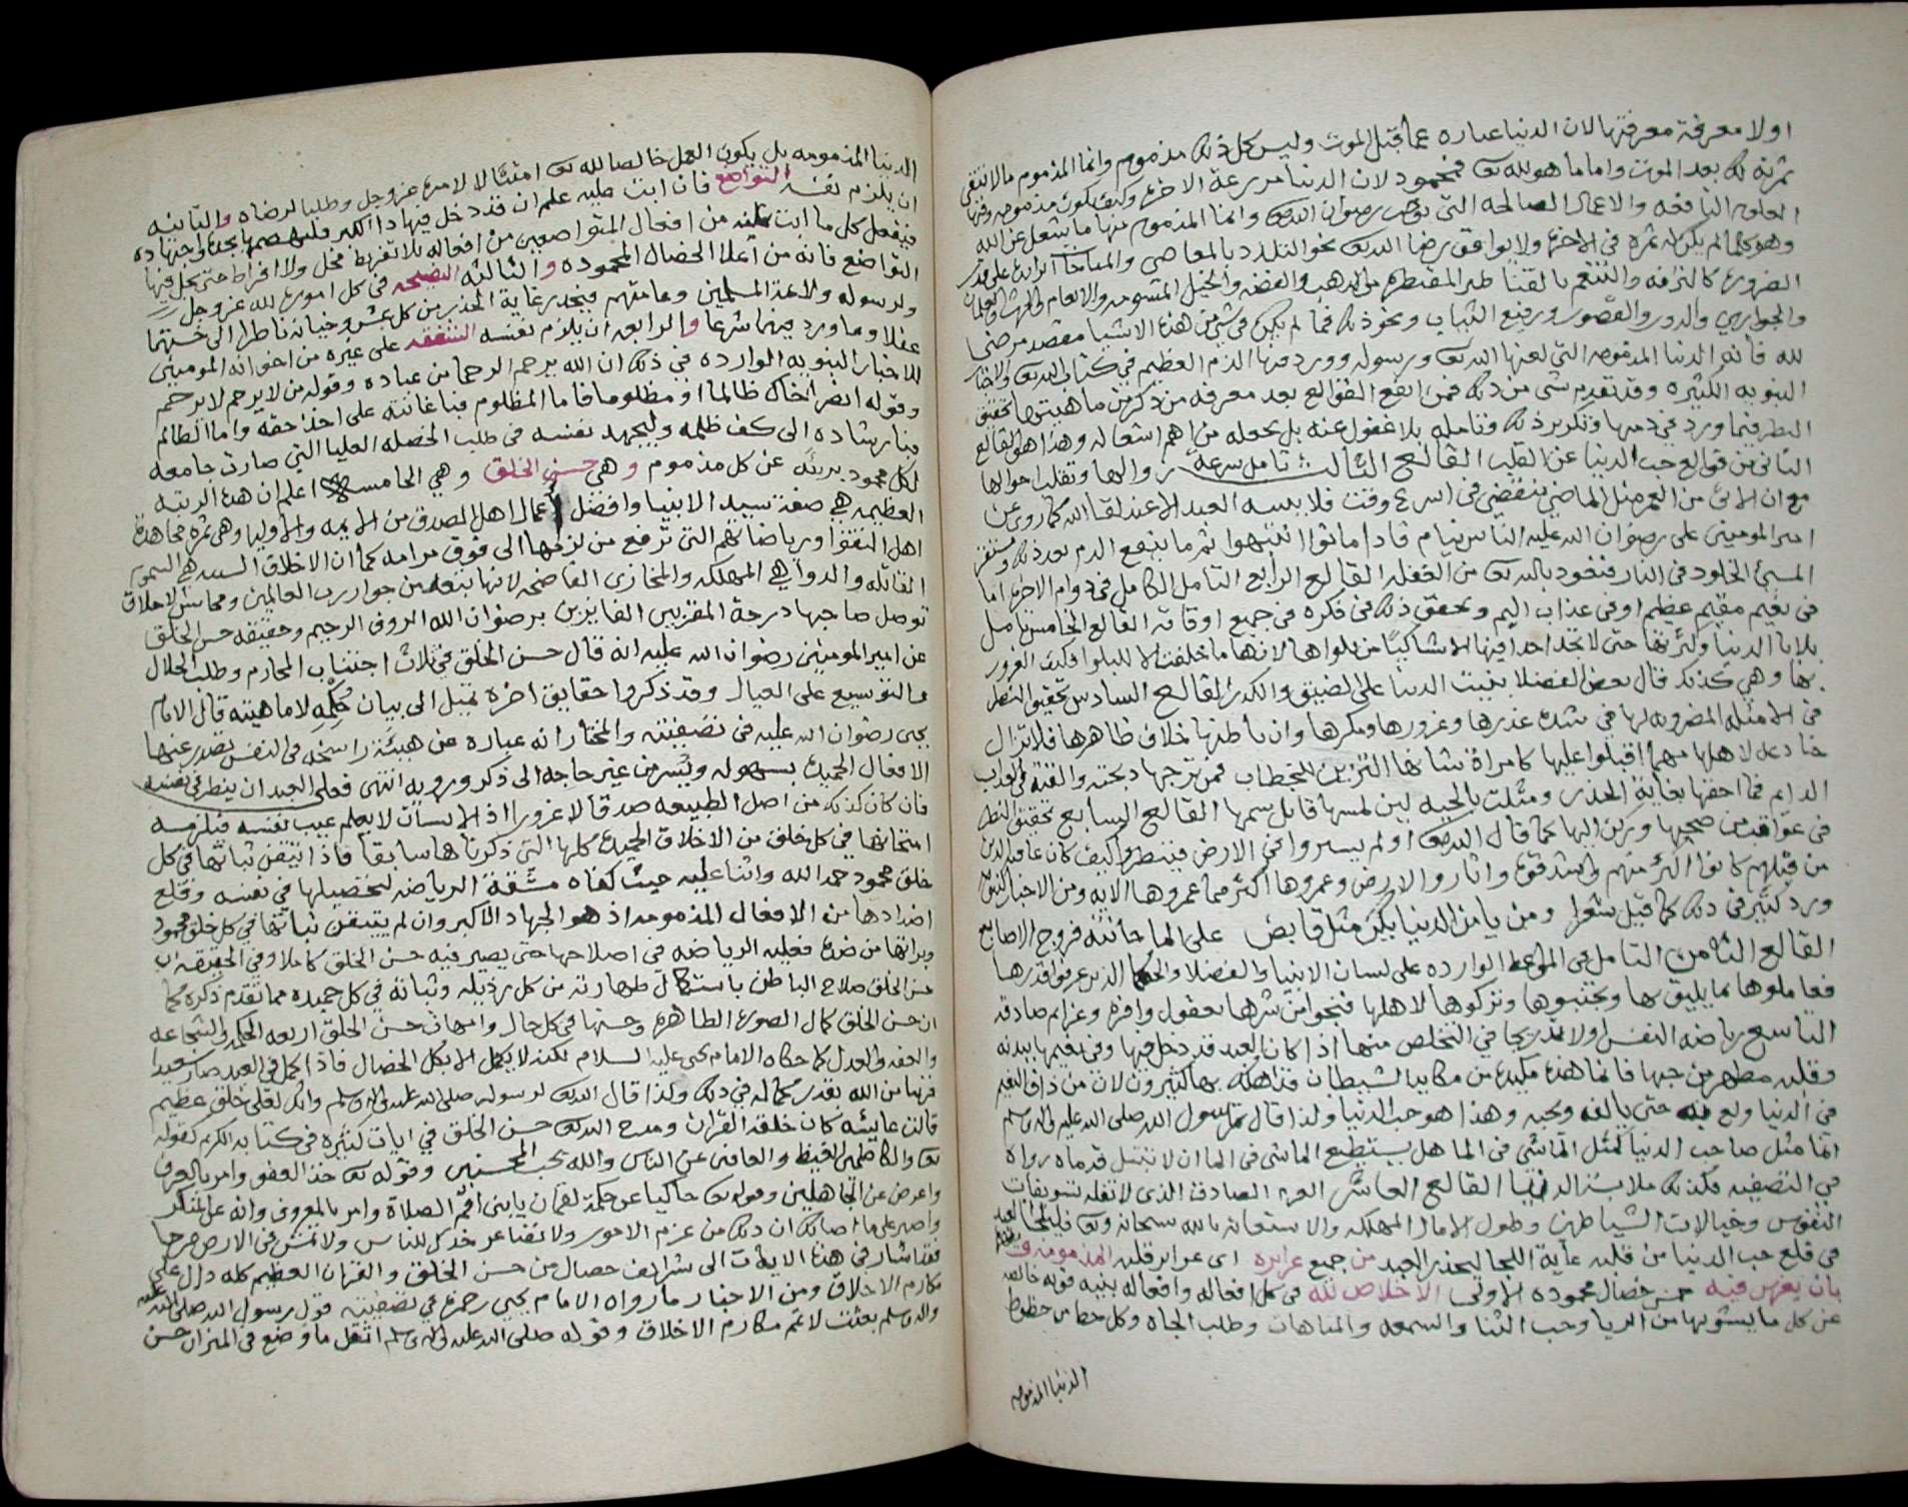 اولا معرفة معرفتها لان الدنيا عباره عما قبل الموت وليس كل ذلك مذموم وانما المذموم مالا تنتقي
ثمرته لك بعد الموت واما ما هو لله تعالى فمحمود لان الدنيا مزرعة الاخرة وكيف يكون مذموم وفيها
العلوم النافعه والاعمال الصالحه التي توجب رضوان الله تعالى وانما المذموم منها ما يشغل عن الله
وهو كلما لم يكن له ثمرة في الاخرة ولا يوافق رضا الله تعالى نحو التلذذ بالمعاصي والمباحات الزايدة على قدر
الضرورة كالترافه والتنعم بالقناطير المقنطرة من الذهب والفضه والخيل المسومه والانعام والحرث والغلمان
والجواري والدور والقصور ورفيع الثياب ونحو ذلك فما لم يكن في شي من هذه الاشيا مقصد مرضي
لله فانه الدنيا المذمومه التي لعنها الله تعالى ورسوله وورد فيها الذم العظيم في كتاب الله تعالى والاخبار
النبويه الكثيره وقد تقدم شي من ذلك فمن انفع القوالع بعد معرفه من ذكر من ماهيتها تحقيق
النظر فيما ورد في ذمها وتكرير ذلك وتامله بلا غفول عنه بل يجعله من اهم اشغاله وهذا هو القالع
الثاني من قوالع حب الدنيا عن القلب القالع الثالث تامل سرعة زوالها وتقلب احوالها
مع ان الاتي من العمر مثل الماضي ينقضي في اسرع وقت فلا يعسه العبد الا عند لقا الله كما روي عن
امير المومنين علي رضوان الله عليه الناس نيام فاذا ماتوا انتبهوا ثم ما ينفع الندم بعد ذلك
المسئ الخلود في النار فنعوذ بالله تعالى من الغفله القالع الرابع التامل الكامل في دوام الاخرة اما
في نعيم مقيم عظيم او في عذاب اليم ويحقق ذلك في فكره في جميع اوقاته القالع الخامس تامل
بلايا الدنيا وكثرتها حتى لا تجد احدا فيها الا شاكيا من بلواها لانها ما خلقت الا للبلوا فكيف الغرور
بها وهي كذلك قال بعض الفضلا بنيت الدنيا على الضيق والكدر القالع السادس تحقيق النظر
في الامثله المضروبه لها في شدة غدرها وغرورها ومكرها وان باطنها خلاف ظاهرها فلا تزال
خادعه لاهلها مهما اقبلوا عليها كامراة شانها التزين للخطاب فمن تزوجها ذبحته والقته في العذاب
الدايم فما احقها بغاية الحذر ومثلت بالحيه لين لمسها قاتل سمها القالع السابع تحقيق النظر
في عواقب من صحبها وركن اليها كما قال الله تعالى اولم يسيروا في الارض فينظروا كيف كان عاقبة الذين
من قبلهم كانوا اكثر منهم واشد قوة واثاروا الارض وعمروها اكثر مما عمروها الايه ومن الاخبار
ورد كثير في ذلك كما قيل شعرا ومن يامن الدنيا يكن مثل قابض على الما خانته فروج الاصابع
القالع الثامن التامل في المواعظ الوارده على لسان الانبيا والفضلا والحكما الذين عرفوا قدرها
فعاملوها بما يليق بها وتجنبوها وتركوها لاهلها فنجوا من شرها بعقول وافرة وعزايم صادقه
التاسع رياضه النفس اولا بتدريجا في التخلص منها اذا كان العبد قد دخل فيها وفي نعيمها ببدنه
وقلبه مطهر من حبها فانما هذه مكيدة من مكايد الشيطان فقد هلك بها كثيرون لان من ذاق النعيم
في الدنيا ولع به حتى يالفه ويحبه وهذا هو حب الدنيا ولذا قال رسول الله صلى الله عليه واله وسلم
انما مثل صاحب الدنيا كمثل الماشي في الما هل يستطيع الماشي في الما ان لا تبتل قدماه رواه
في التصفيه فكذلك ملابسة الدنيا القالع العاشر العزم الصادق الذي لا تفله تسويفات
النفوس وخيالات الشياطين وطول الامال المهلكه والاستعانه بالله سبحانه وتعالى فليلجأ العبد
في قلع حب الدنيا من قلبه غاية اللجا ليحذر العبد من جميع غرايره اي غراير قلبه المذمومه
بان يغرس فيه خمس خصال محموده الاولى الاخلاص لله في كل افعاله واقواله بنيه قويه خالصه
عن كل ما يشوبها من الريا وحب الثنا والسمعه والمباهات وطلب الجاه وكل حظ من حظوظ
الدنيا المذمومه
الدنيا المذمومه بل يكون العمل خالصا لله تعالى امتثالا لامره عز وجل وطلبا لرضاه والثانيه
ان يلزم نفسه التواضع فان ابت عليه علم ان قد دخل فيها دا الكبر فليهضمها بجده واجتهاده
فيفعل كل ما ابت عليه من افعال المتواضعين من افعاله بلا تفريط مخل ولا افراط حتى يحل فيها
التواضع فانه من اعلا الخصال المحموده والثالثه النصيحه في كل اموره لله عز وجل
ولرسوله ولائمة المسلمين وعامتهم فيحذر غاية الحذر من كل غش وخيانة ناظرا الى خستهما
عقلا وما ورد فيهما شرعا والرابعه ان يلزم نفسه الشفقه على غيره من اخوانه المومنين
للاخبار النبويه الوارده في ذلك ان الله يرحم الرحما من عباده وقوله من لا يرحم لا يرحم
وقوله انصر اخاك ظالما او مظلوما فاما المظلوم فباغاثته على اخذ حقه واما الظالم
فبارشاده الى كف ظلمه وليجهد نفسه في طلب الخصله العليا التي صارت جامعه
لكل محمود بريئه عن كل مذموم وهي حسن الخلق وهي الخامسه اعلم ان هذه الرتبه
العظيمه هي صفة سيد الانبيا وافضل اعمال اهل الصدق من الايمه والاوليا وهي ثمرة مجاهدة
اهل التقوا ورياضاتهم التي ترفع من لزمها الى فوق مرامه كما ان الاخلاق السيئه هي السموم
القاتله والدواهي المهلكه والمخازي الفاضحه لانها تبعد من جوار رب العالمين ومحاسن الاخلاق
توصل صاحبها درجة المقربين الفايزين برضوان الله الروف الرحيم وحقيقه حسن الخلق
عن امير المومنين رضوان الله عليه انه قال حسن الخلق في ثلاث اجتناب المحارم وطلب الحلال
والتوسيع على العيال وقد ذكروا حقايق اخرة تميل الى بيان حكمه لا ماهيته قال الامام
يحيى رضوان الله عليه في تصفيته والمختار انه عباره عن هيئة راسخه في النفس يصدر عنها
الافعال الحميدة بسهوله ويسر من غير حاجه الى ذكر ورويه انتهى فعلى العبد ان ينظر في نفسه
فان كان كذلك من اصل الطبيعه صدقا لا غرورا اذ الانسان لا يعلم عيب نفسه فيلزمه
امتحانها في كل خلق من الاخلاق الحميدة كلها التي ذكرناها سابقا فاذا تيقن ثباتها في كل
خلق محمود حمد الله واثنا عليه حيث كفاه مشقة الرياضه لتحصيلها في نفسه وقلع
اضدادها من الافعال المذمومه اذ هو الجهاد الاكبر وان لم يتيقن ثباتها في كل خلق محمود
وبراتها من ضده فعليه الرياضه في اصلاحها حتى يصير فيه حسن الخلق كاملا وفي الحقيقه ان
حسن الخلق صلاح الباطن باستكمال طهارته من كل رذيله وثباته في كل حميده مما تقدم ذكره كما
ان حسن الخلق كمال الصورة الظاهره وحسنها في كل حال وامهات حسن الخلق اربعه الحكمه والشجاعه
والعفه والعدل كما حكاه الامام يحيى عليه السلام لكنه لا يكمل الا بكل الخصال فاذا كمل في العبد صار سعيدا
قريبا من الله بقدر كماله في ذلك ولذا قال الله تعالى لرسوله صلى الله عليه واله وسلم وانك لعلى خلق عظيم
قالت عايشه كان خلقه القران ومدح الله تعالى حسن الخلق في ايات كثيره في كتابه الكريم كقوله
تعالى والكاظمين الغيظ والعافين عن الناس والله يحب المحسنين وقوله تعالى خذ العفو وامر بالعرف
واعرض عن الجاهلين وقوله تعالى حاكيا عن حكمة لقمان يابني اقم الصلاة وامر بالمعروف وانه عن المنكر
واصبر على ما اصابك ان ذلك من عزم الامور ولا تصاعر خدك للناس ولا تمش في الارض مرحا
فقد اشار في هذه الايات الى شرايف خصال من حسن الخلق والقران العظيم كله دال على
مكارم الاخلاق ومن الاخبار ما رواه الامام يحيى رحمه في تصفيته قول رسول الله صلى الله عليه
واله وسلم بعثت لاتمم مكارم الاخلاق وقوله صلى الله عليه واله وسلم اثقل ما وضع في الميزان حسن